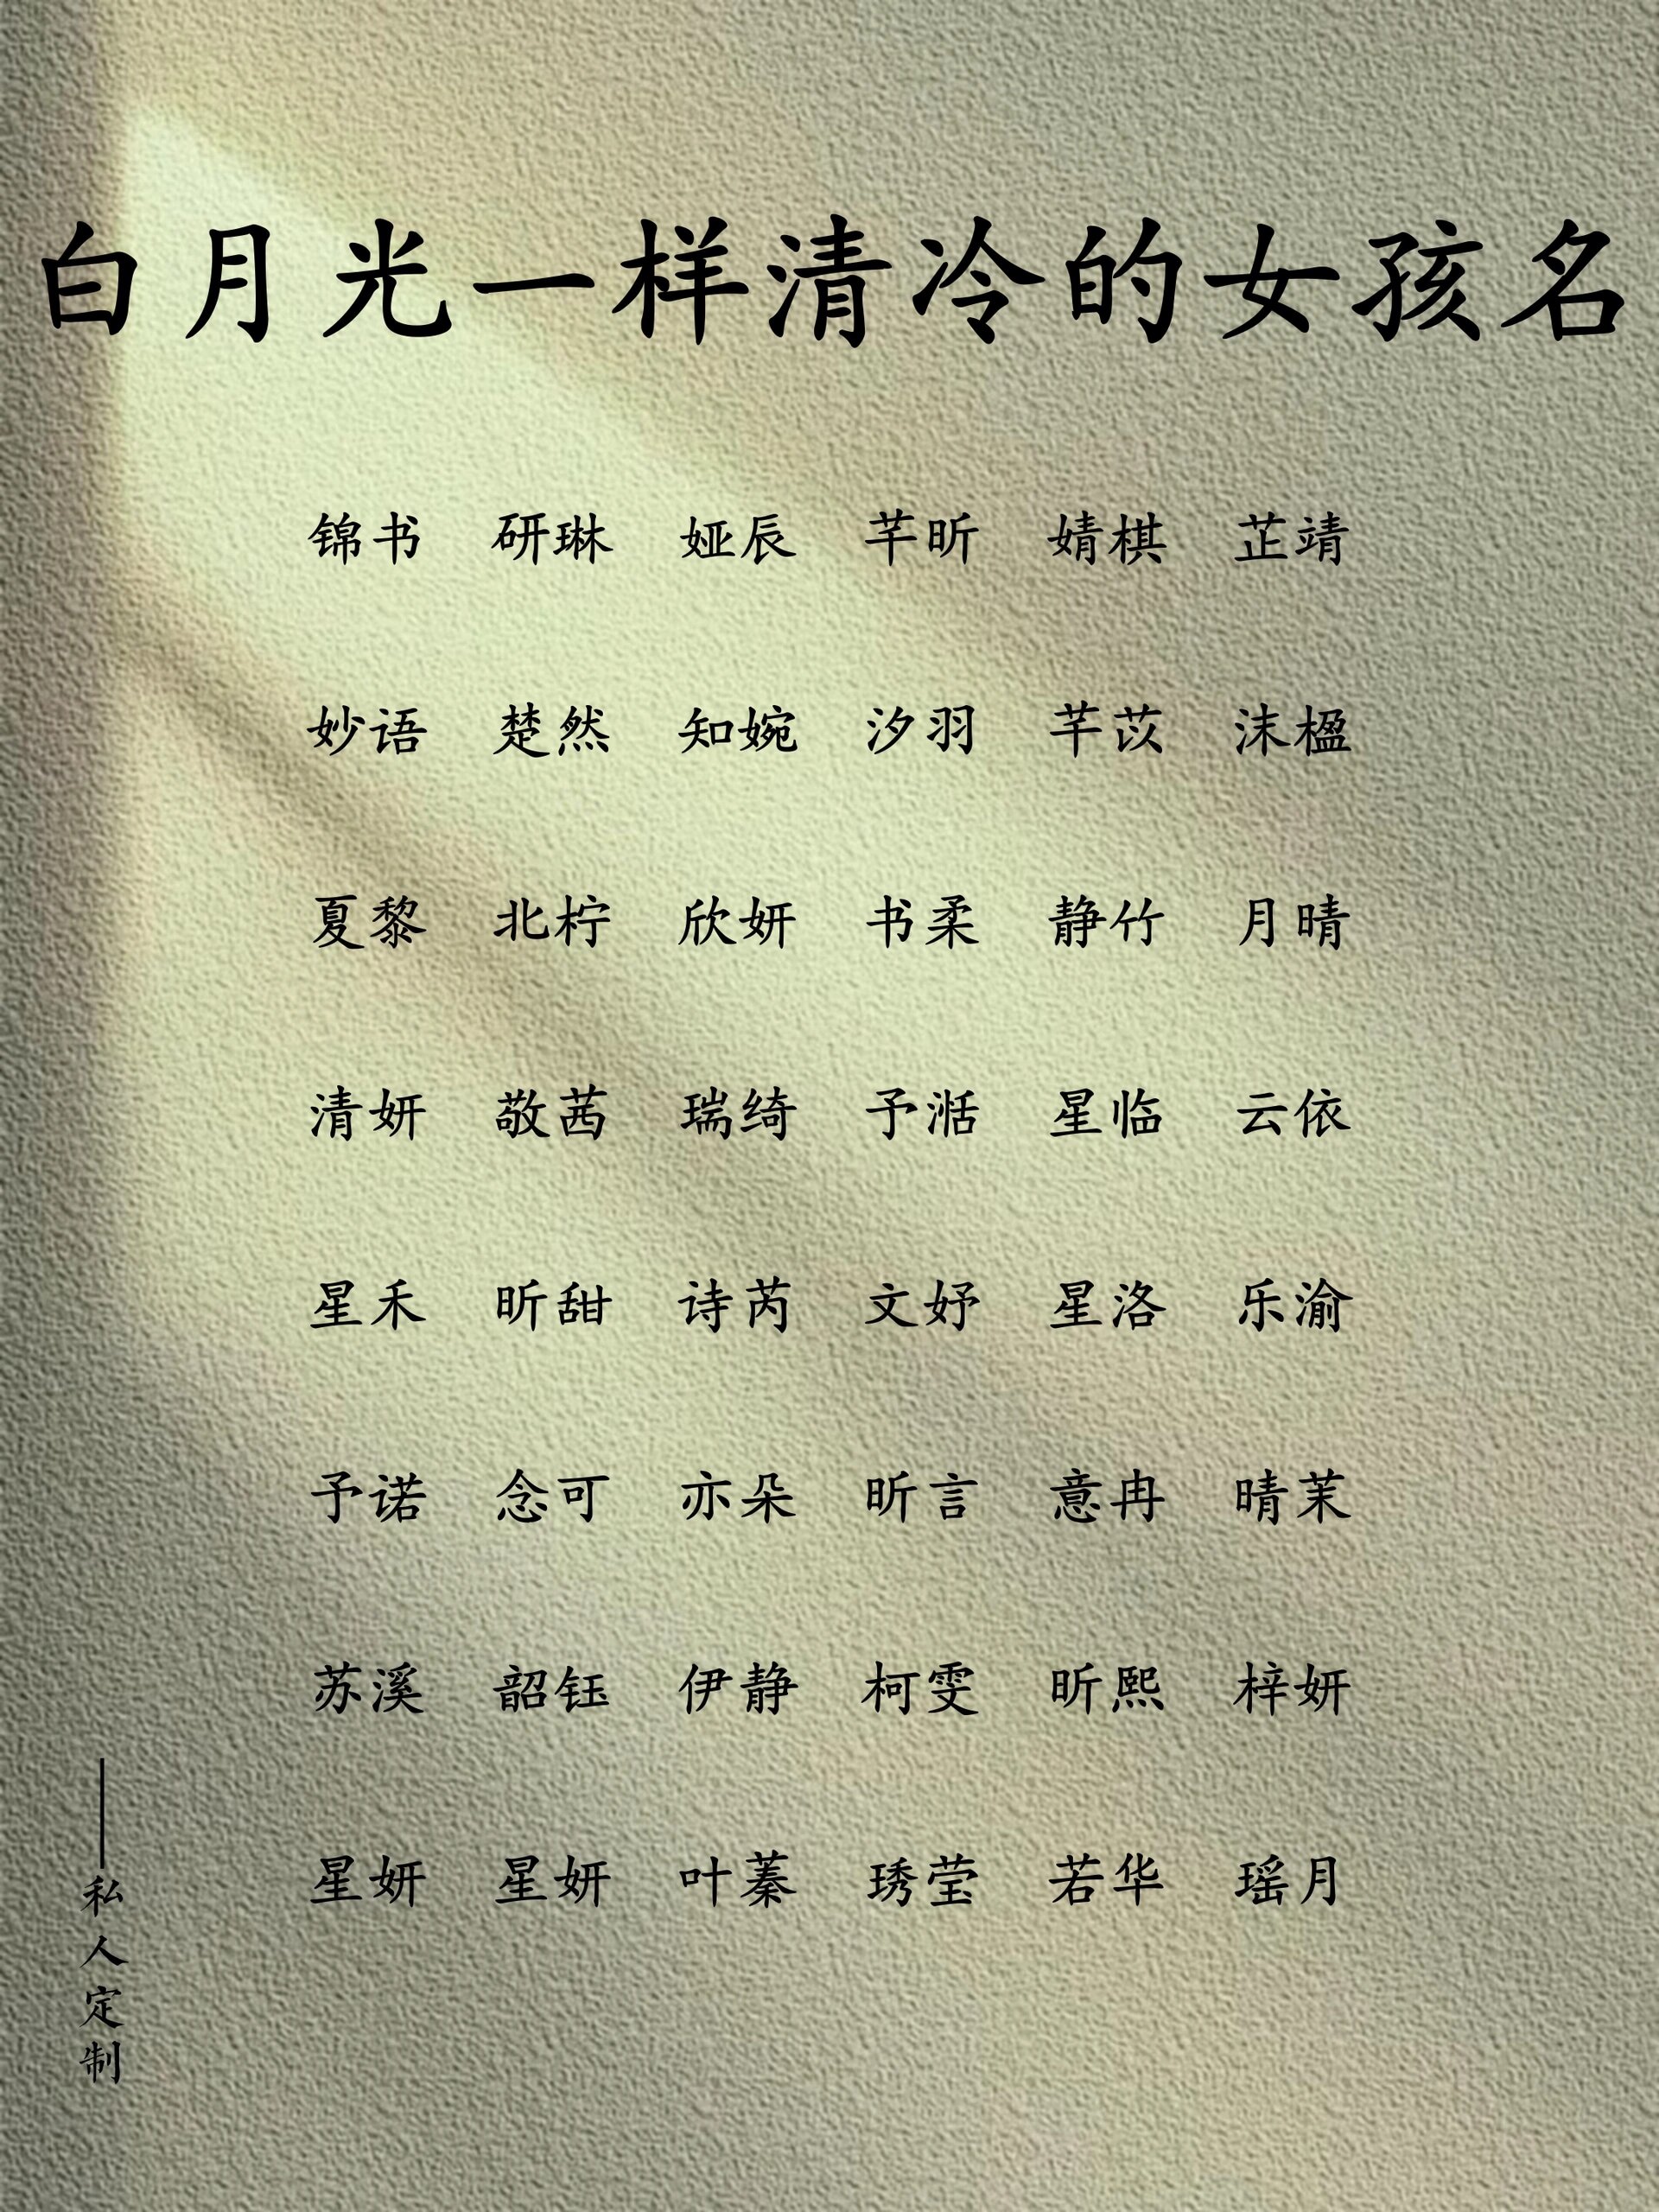 白月光一样清冷的女孩名
锦书 研琳 娅辰 芊昕 婧棋 芷靖
妙语 楚然 知婉 汐羽 芊苡 沫楹
夏黎 北柠 欣妍 书柔 静竹 月晴
清妍 敬茜 瑞绮 予湉 星临 云依
星禾 昕甜 诗芮 文妤 星洛 乐渝
予诺 念可 亦朵 昕言 意冉 晴茉
苏溪 韶钰 伊静 柯雯 昕熙 梓妍
星妍 星妍 叶蓁 琇莹 若华 瑶月
——私人定制